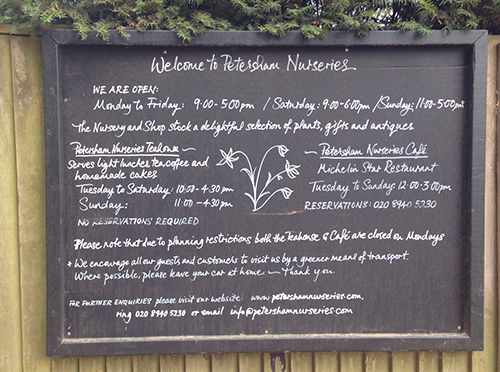 Welcome to Petersham Nurseries
WE ARE OPEN:
Monday to Friday: 9:00-5:00pm / Saturday: 9:00-6:00pm / Sunday: 11:00-5:00pm
The Nursery and Shop stock a delightful selection of plants, gifts and antiques
Petersham Nurseries Teahouse
serves light lunches tea, coffee and
homemade cakes
Tuesday to Saturday: 10:00-4:30pm
Sunday: 11:00-4:30pm
NO RESERVATIONS REQUIRED
Petersham Nurseries Café
Michelin Star Restaurant
Tuesday to Sunday: 12:00-3:00pm
RESERVATIONS: 020 8940 5230
Please note that due to planning restrictions both the Teahouse & Café are closed on Mondays
* We encourage all our guests and customers to visit us by a greener means of transport.
Where possible, please leave your car at home. ~ Thank you
FOR FURTHER ENQUIRIES please visit our website: www.petershamnurseries.com,
ring 020 8940 5230 or email info@petershamnurseries.com